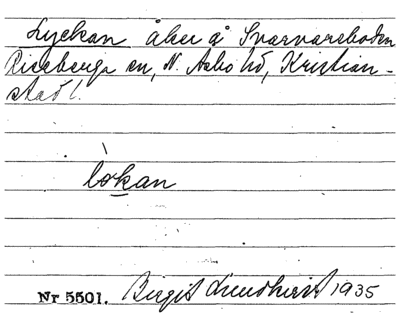 Lyckan åker å Svarvareboden
Riseberga sn, N. Åsbo hd, Kristian-
stad l.
lo̱kan
Nr 5501. Birgit Lundkvist 1935